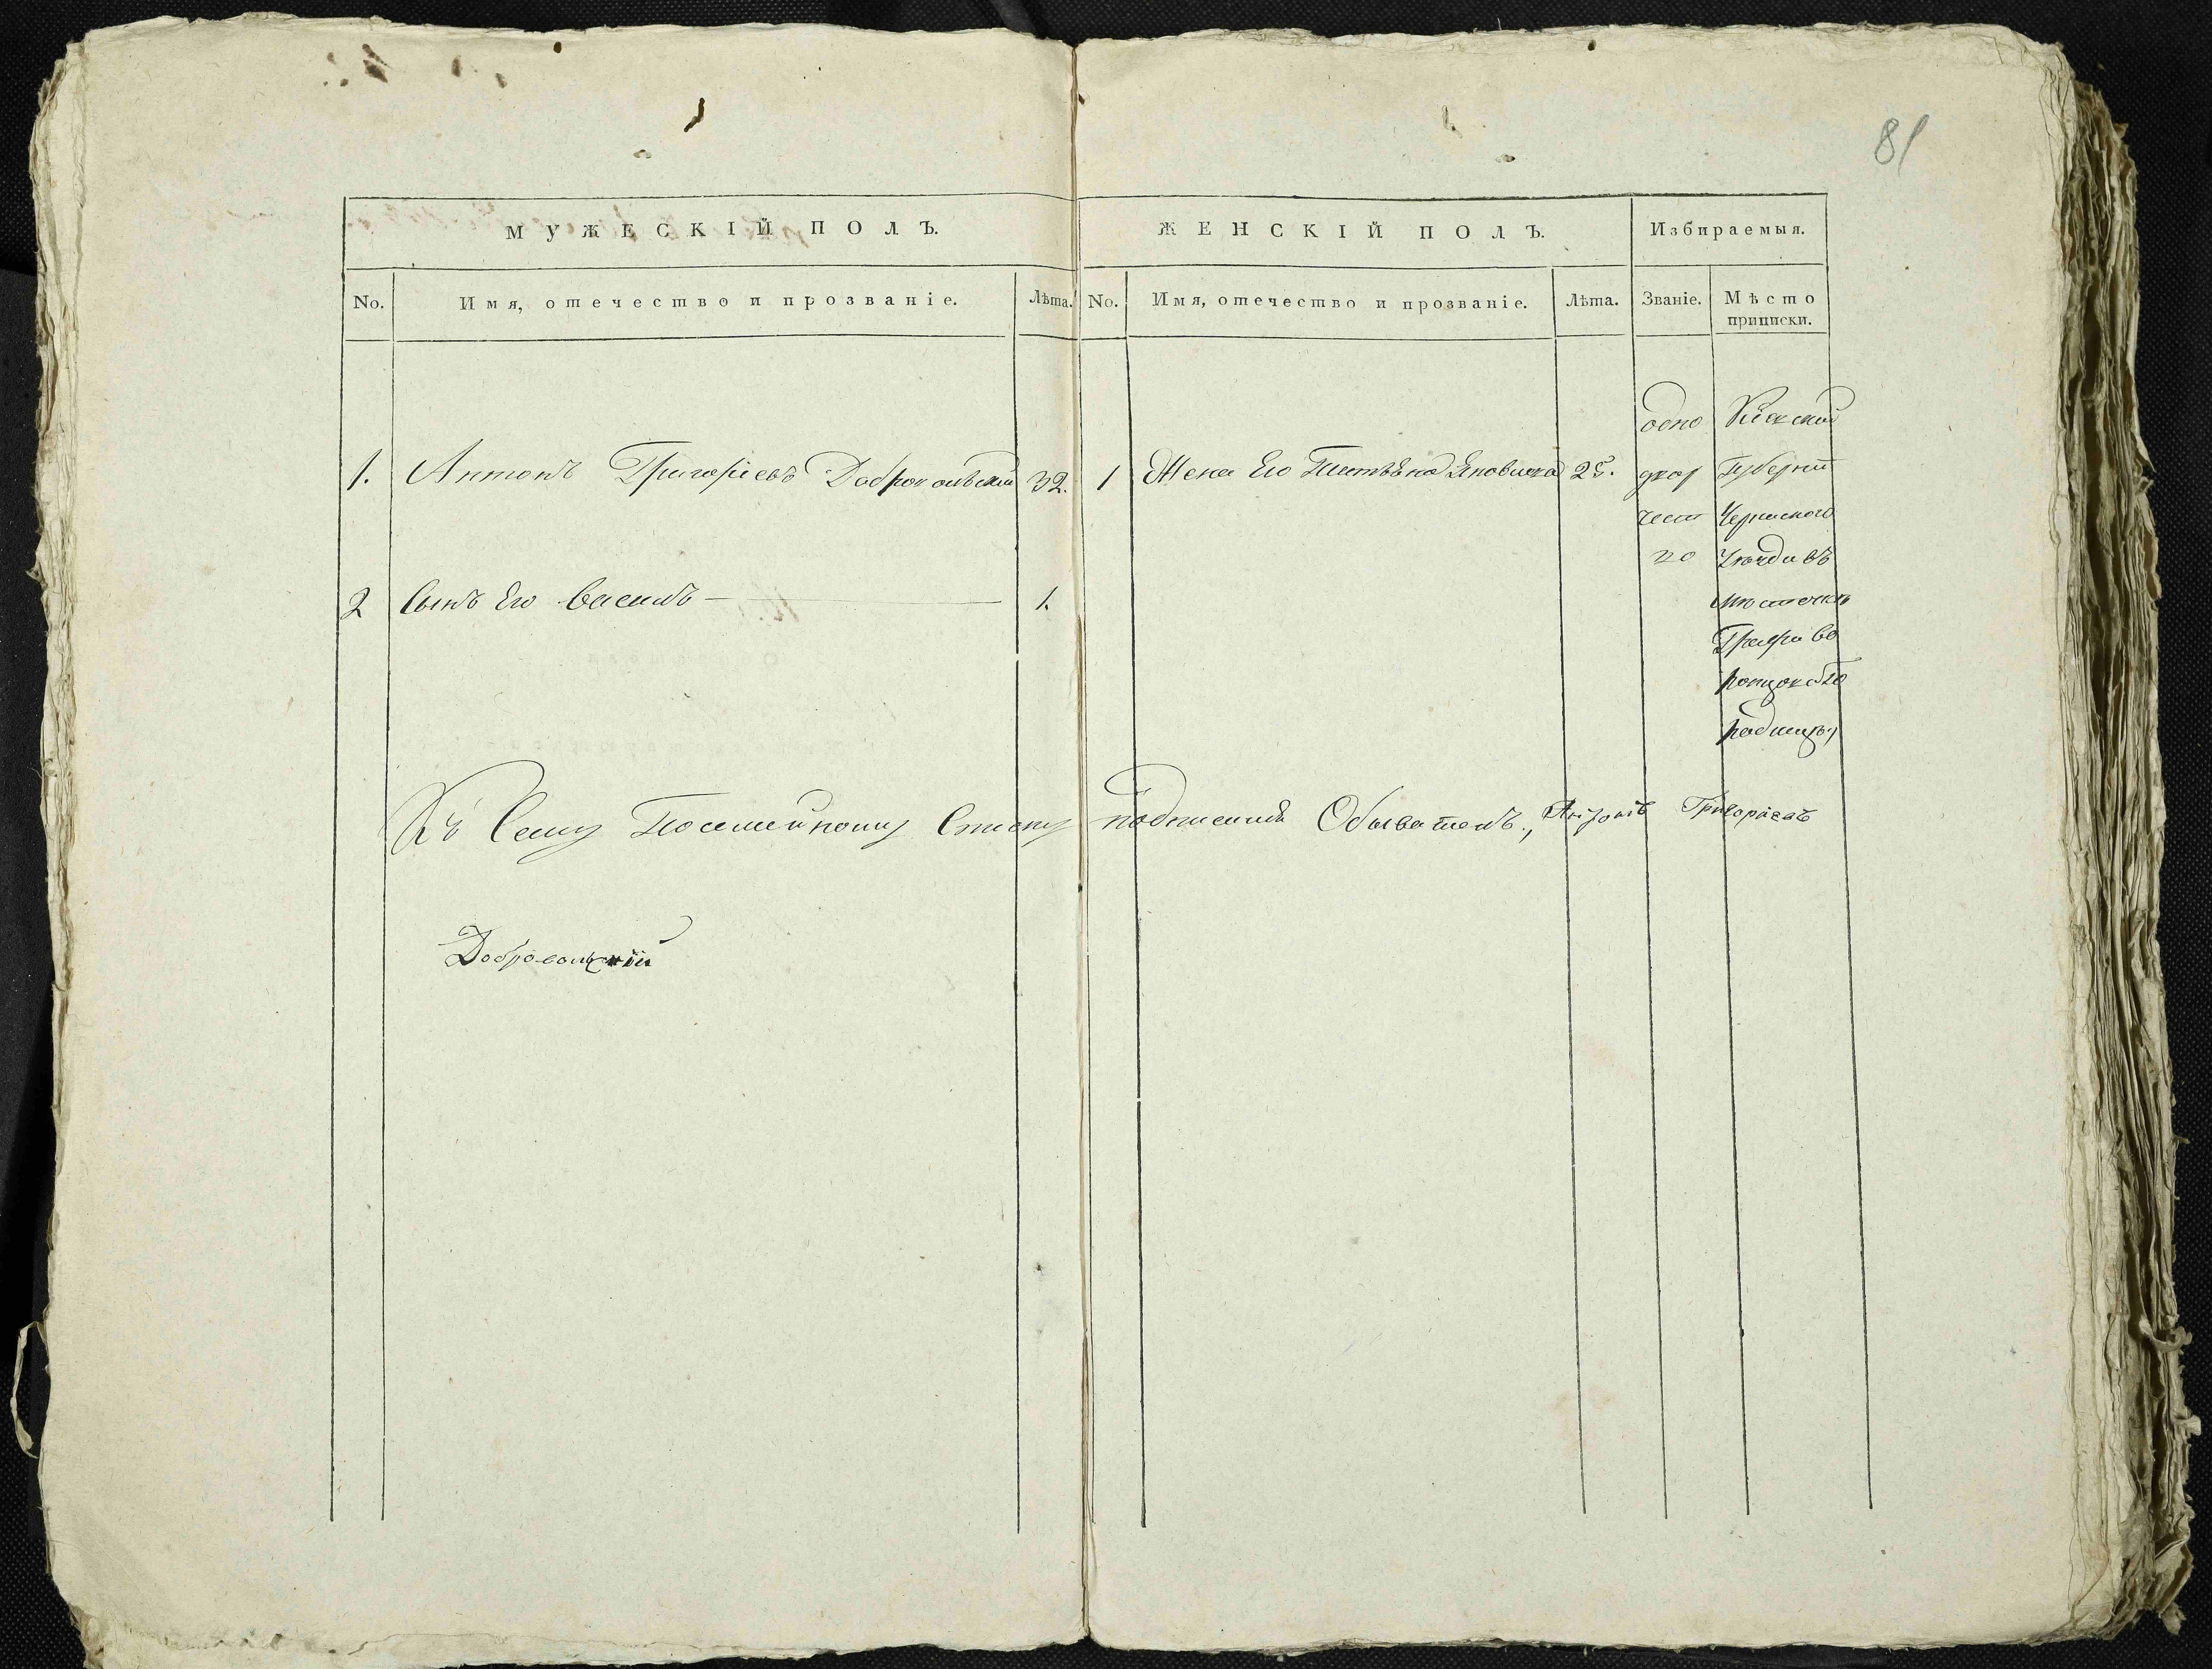 81
МУЖЕСКІЙ ПОЛЪ.
ЖЕНСКІЙ ПОЛЪ.
Избираемыя.
No.
Имя, отечество и прозваніе.
Лѣта.
No.
Имя, отечество и прозваніе.
Лѣта.
Званіе.
Мѣсто
приписки.
1. Антонъ Григоріевъ Доброволский 32.
1 Жена Его 25.
2 Сынъ Его Василь 1.
одно
двор
чест
во
Киевской
Губерніи
уѣзда въ
местечкѣ
Къ Сему Посемейному Списку подписался Обыватель, Антонъ Григоріевъ
Доброволцкій